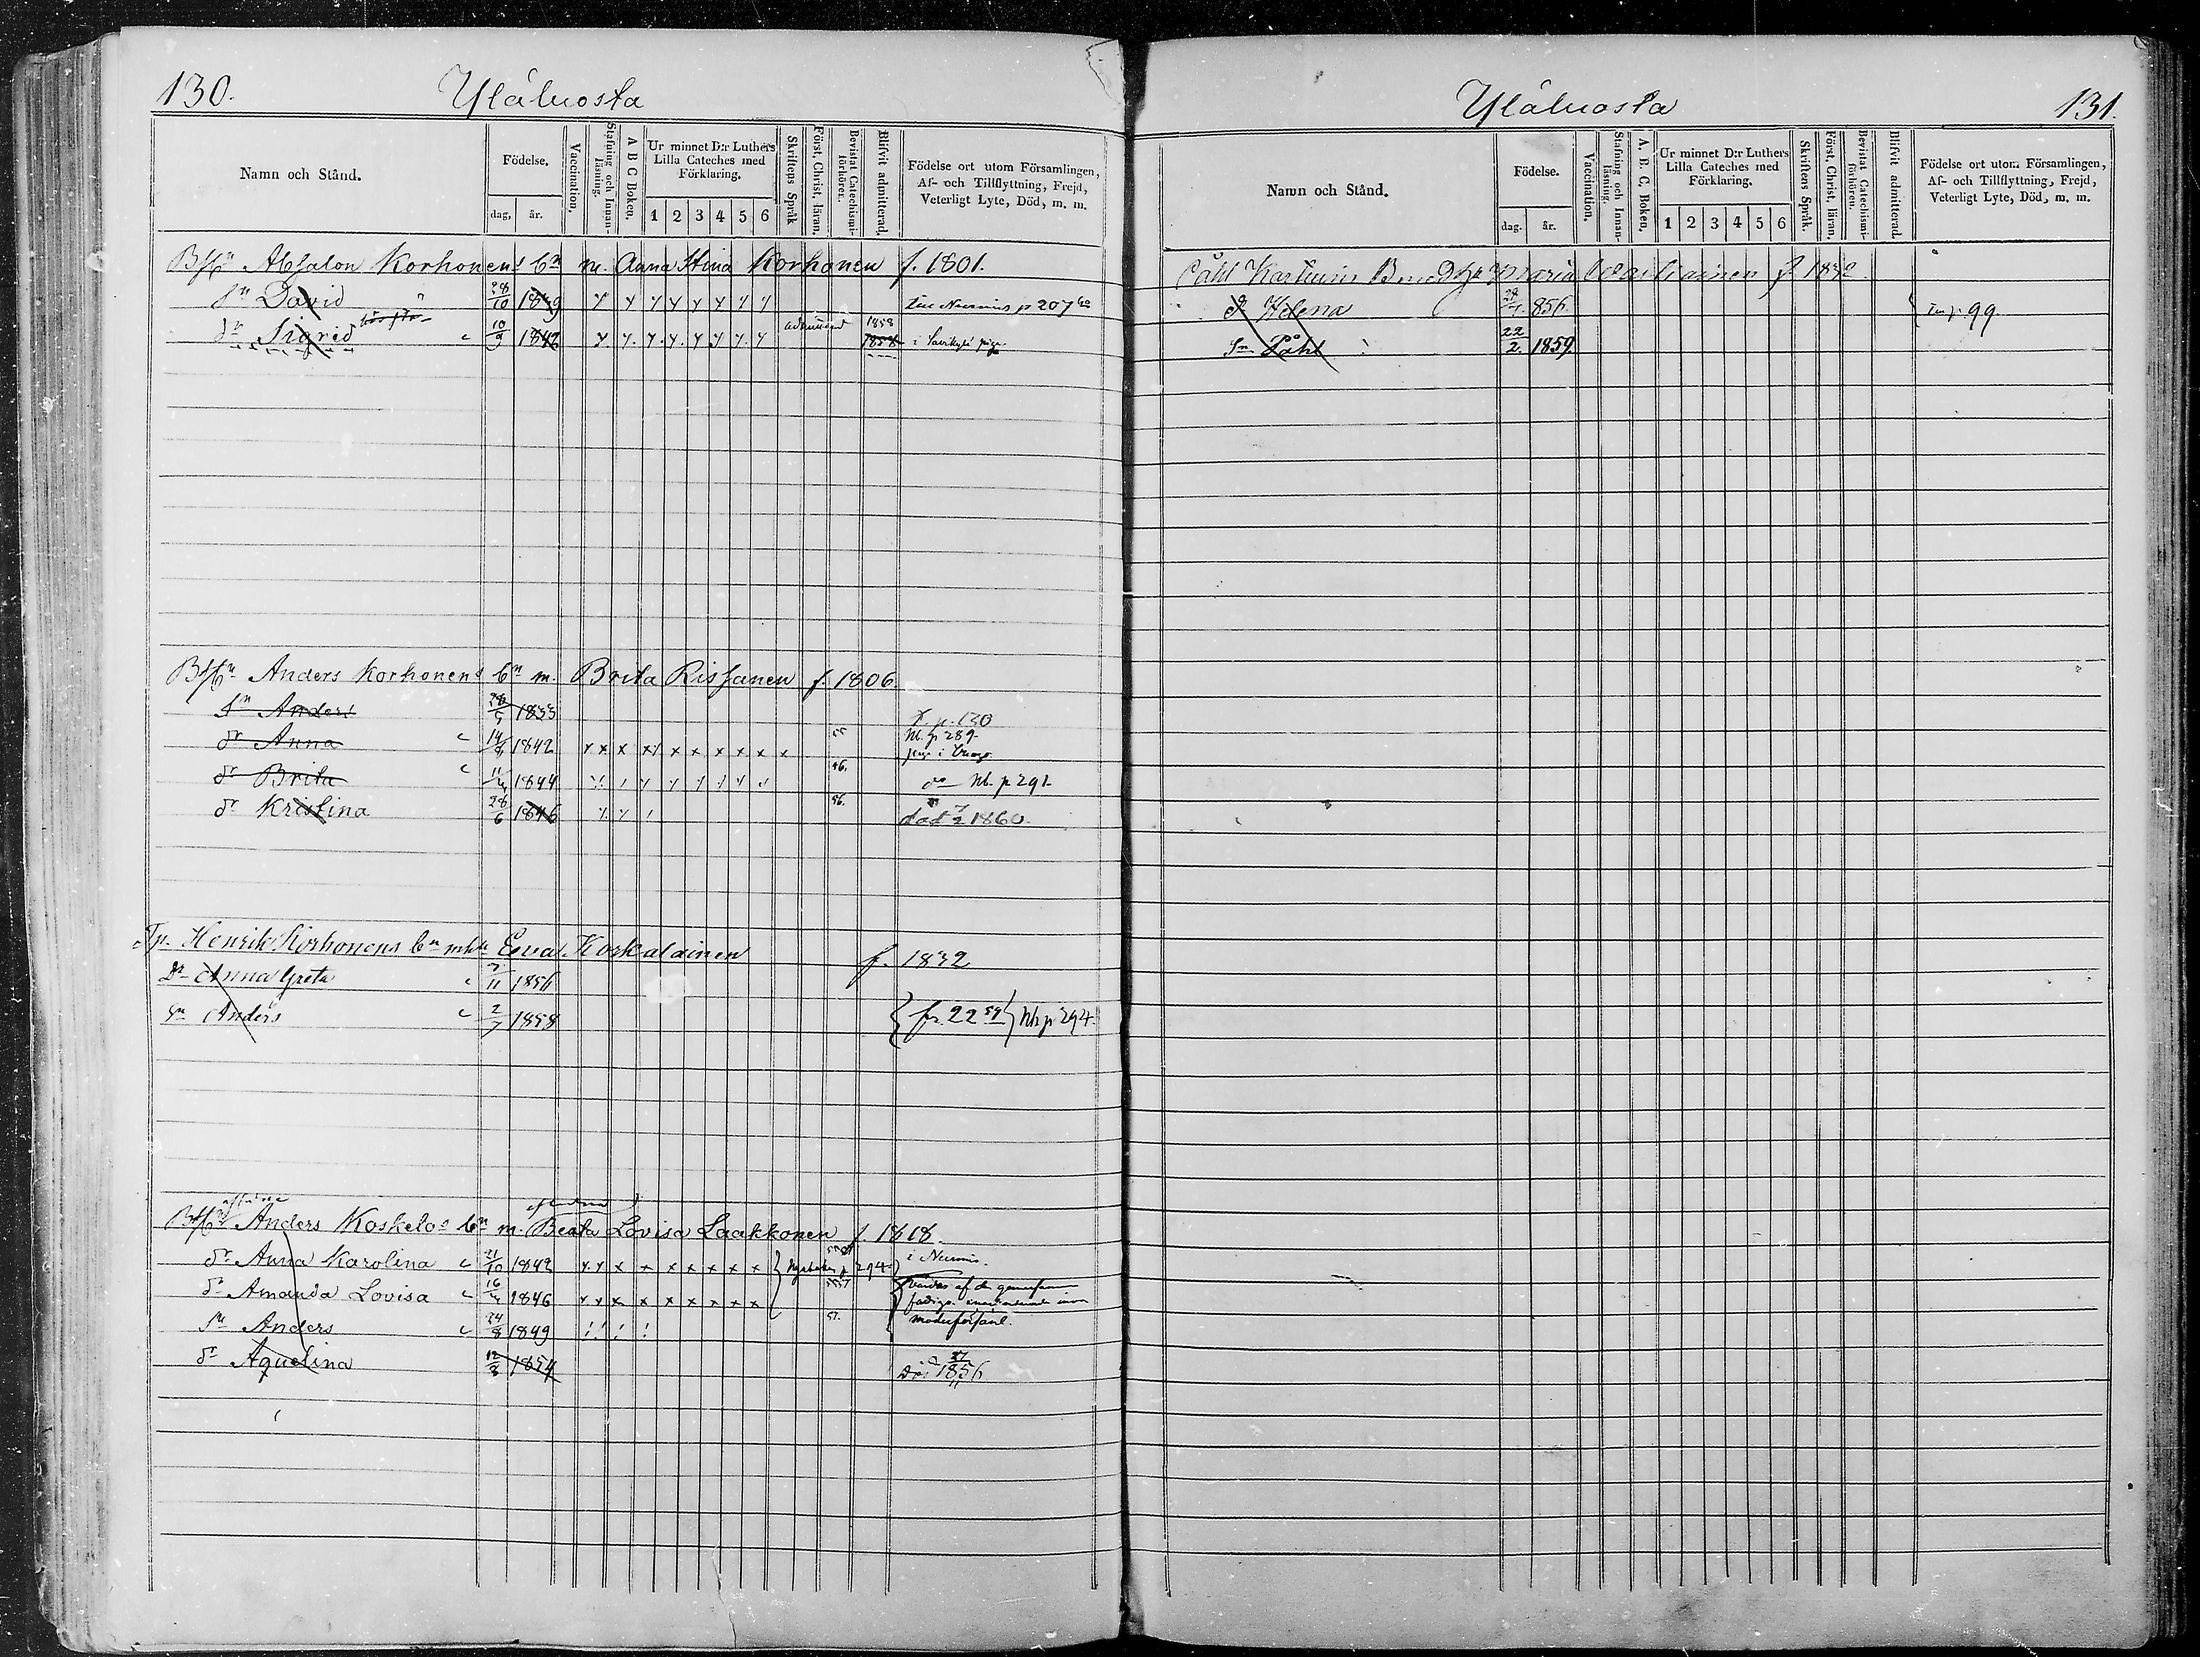 130.
Yläluosta
Namn och Stånd.
Födelse.
dag, år.
Vaccination.
Stafning och Innanläsning.
A B C Boken.
Ur minnet D:r Luthers Lilla Cateches med Förklaring.
1 2 3 4 5 6
Skriftens Språk
Först. Christ. läran.
Bevistat Catechismiförhören.
Blifvit admitterad.
Födelse ort utom Församlingen, Af- och Tillflyttning, Frejd, Veterligt Lyte, Död, m. m.
Absalon Korhonens bn m. Anna Stina Korhonen f. 1801.
Sn David 28/10 1839 p 207
dr Sigrid 10/9 1842 1858 1858 i
Anders Korhonens bn m. Brita Rissanen f. 1806.
Sn Anders 1833 p. 130
dr Anna 14/8 1842 Nb. p 289.
dr Brita 11/4 1844 56. do Nb. p 291.
dr Kristina 28/6 1846 56. död 7/2 1860.
Tp. Henrik Korhonens bn m. Eva Korkalainen f. 1832
Dr Anna Greta 7/11 1856
Sn Anders 2/7 1858 { fr. 22 59 } Nb p 294.
Anders Koskelos bn m. Beata Lovisa Laakkonen f. 1818.
dr Anna Karolina 21/10 1842 p 294 i Nurmis.
dr Amanda Lovisa 16/4 1846
Sn Anders 24/8 1849 57.
dr Aquelina 12/3 1854 Död 27/11 1856
Yläluosta
131.
Namn och Stånd.
Födelse.
dag. år.
Vaccination.
Stafning och Innanläsning.
A. B. C. Boken.
Ur minnet D:r Luthers Lilla Cateches med Förklaring.
1 2 3 4 5 6
Skriftens Språk.
Först. Christ. läran.
Bevistat Catechismiförhören.
Blifvit admitterad.
Födelse ort utom Församlingen, Af- och Tillflyttning, Frejd, Veterligt Lyte, Död, m. m.
Påhl Maria f.
dr Helena 856. p. 99
Sn Påhl 22/2. 1859.